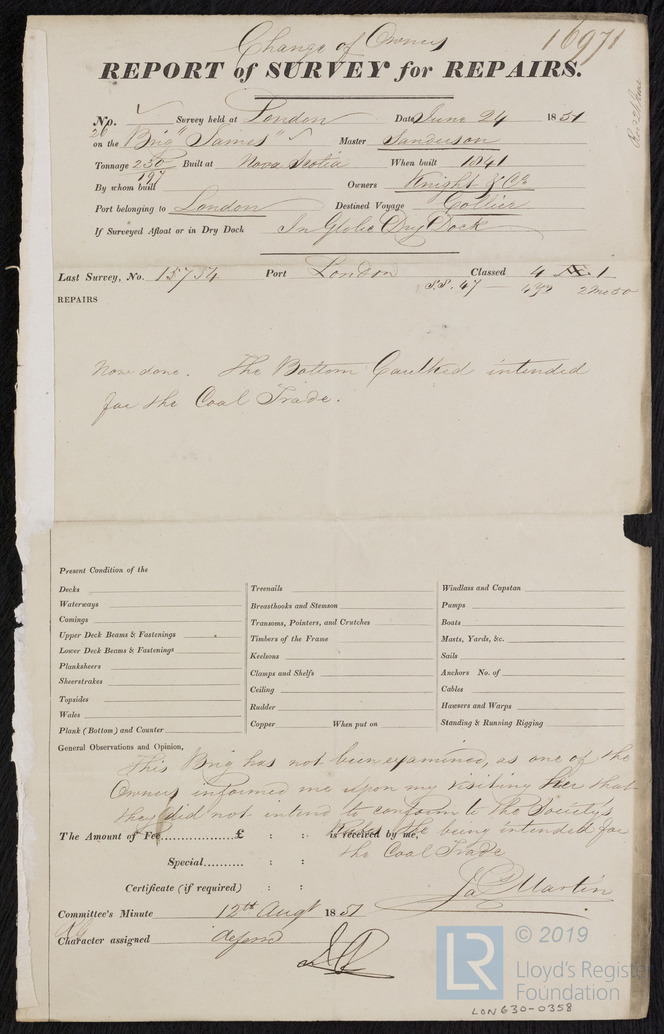 Change of Owners
16971
REPORT of SURVEY for REPAIRS.
No. Survey held at London Date June 24 1851
on the Brig "James" Master Sanderson
Tonnage 250 Built at Nova Scotia When built 1841
197
By whom built Owners Knight & Co
Port belonging to London Destined Voyage Collier
If Surveyed Afloat or in Dry Dock In Globe Dry Dock
Last Survey, No. 15754 Port London Classed 4 1
S.S. 47
REPAIRS
None done. The Bottom Caulked intended
for the Coal Trade.
Present Condition of the
Decks
Waterways
Comings
Upper Deck Beams & Fastenings
Lower Deck Beams & Fastenings
Planksheers
Sheerstrakes
Topsides
Wales
Plank (Bottom) and Counter
Treenails
Breasthooks and Stemson
Transoms, Pointers, and Crutches
Timbers of the Frame
Keelsons
Clamps and Shelfs
Ceiling
Rudder
Copper When put on
Windlass and Capstan
Pumps
Boats
Masts, Yards, &c.
Sails
Anchors No. of
Cables
Hawsers and Warps
Standing & Running Rigging
General Observations and Opinion,
This Brig has not been examined, as one of the
Owners informed me upon my visiting her that
they did not intend to conform to the Society's
being intended for
the Coal Trade
The Amount of Fee £ : : is received by me,
Special : :
Certificate (if required) : :
Jas Martin
Committee's Minute 12th Augt 1851
Character assigned deferred
LR © 2019
Lloyd's Register
Foundation
LON630-0358